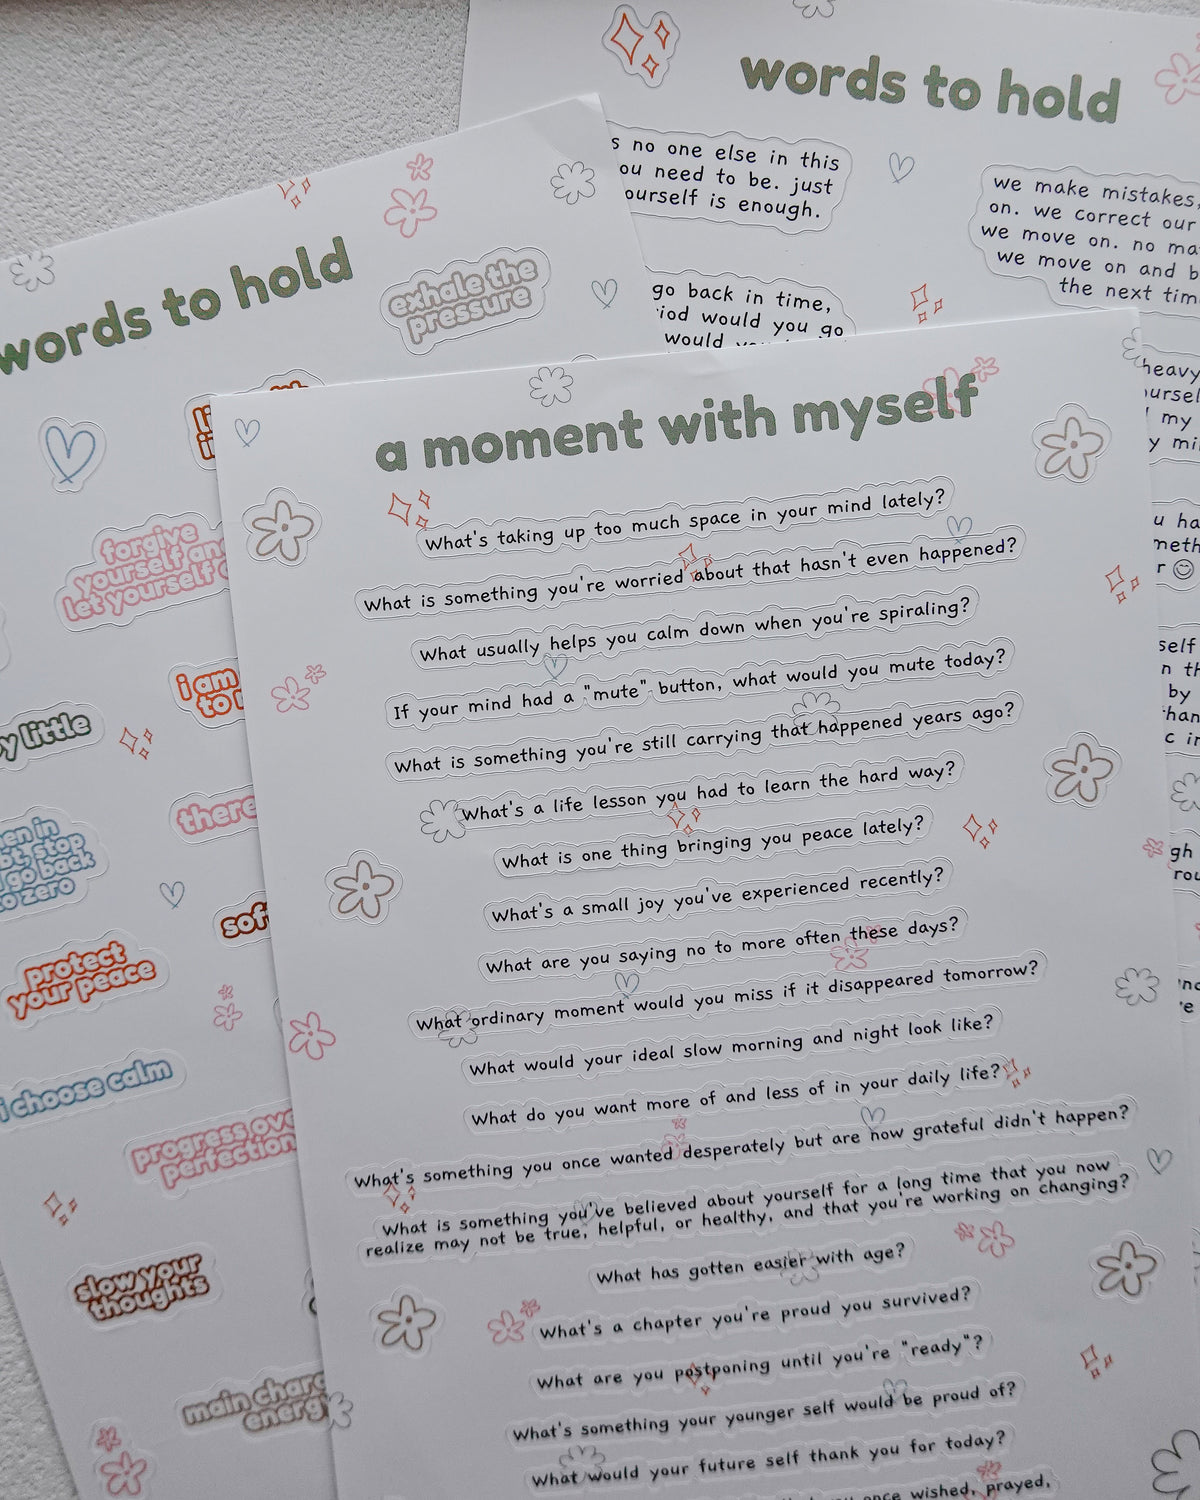 words to hold
s no one else in this
ou need to be. just
ourself is enough.
we make mistakes,
on. we correct our
we move on. no ma
we move on and b
the next tim
go back in time,
iod would you go
would
heavy
ursel
my
y mi
u ha
meth
r
self
n th
by
han
c in
gh
rou
words to hold
exhale the
pressure
forgive
yourself an
let yourself
i am
to
y little
there
en in
bt, stop
go back
o zero
sof
protect
your peace
i choose calm
progress ove
perfection
slow your
thoughts
main chara
energy
a moment with myself
What's taking up too much space in your mind lately?
What is something you're worried about that hasn't even happened?
What usually helps you calm down when you're spiraling?
If your mind had a "mute" button, what would you mute today?
What is something you're still carrying that happened years ago?
What's a life lesson you had to learn the hard way?
What is one thing bringing you peace lately?
What's a small joy you've experienced recently?
What are you saying no to more often these days?
What ordinary moment would you miss if it disappeared tomorrow?
What would your ideal slow morning and night look like?
What do you want more of and less of in your daily life?
What's something you once wanted desperately but are now grateful didn't happen?
What is something you've believed about yourself for a long time that you now
realize may not be true, helpful, or healthy, and that you're working on changing?
What has gotten easier with age?
What's a chapter you're proud you survived?
What are you postponing until you're "ready"?
What's something your younger self would be proud of?
What would your future self thank you for today?
once wished, prayed,